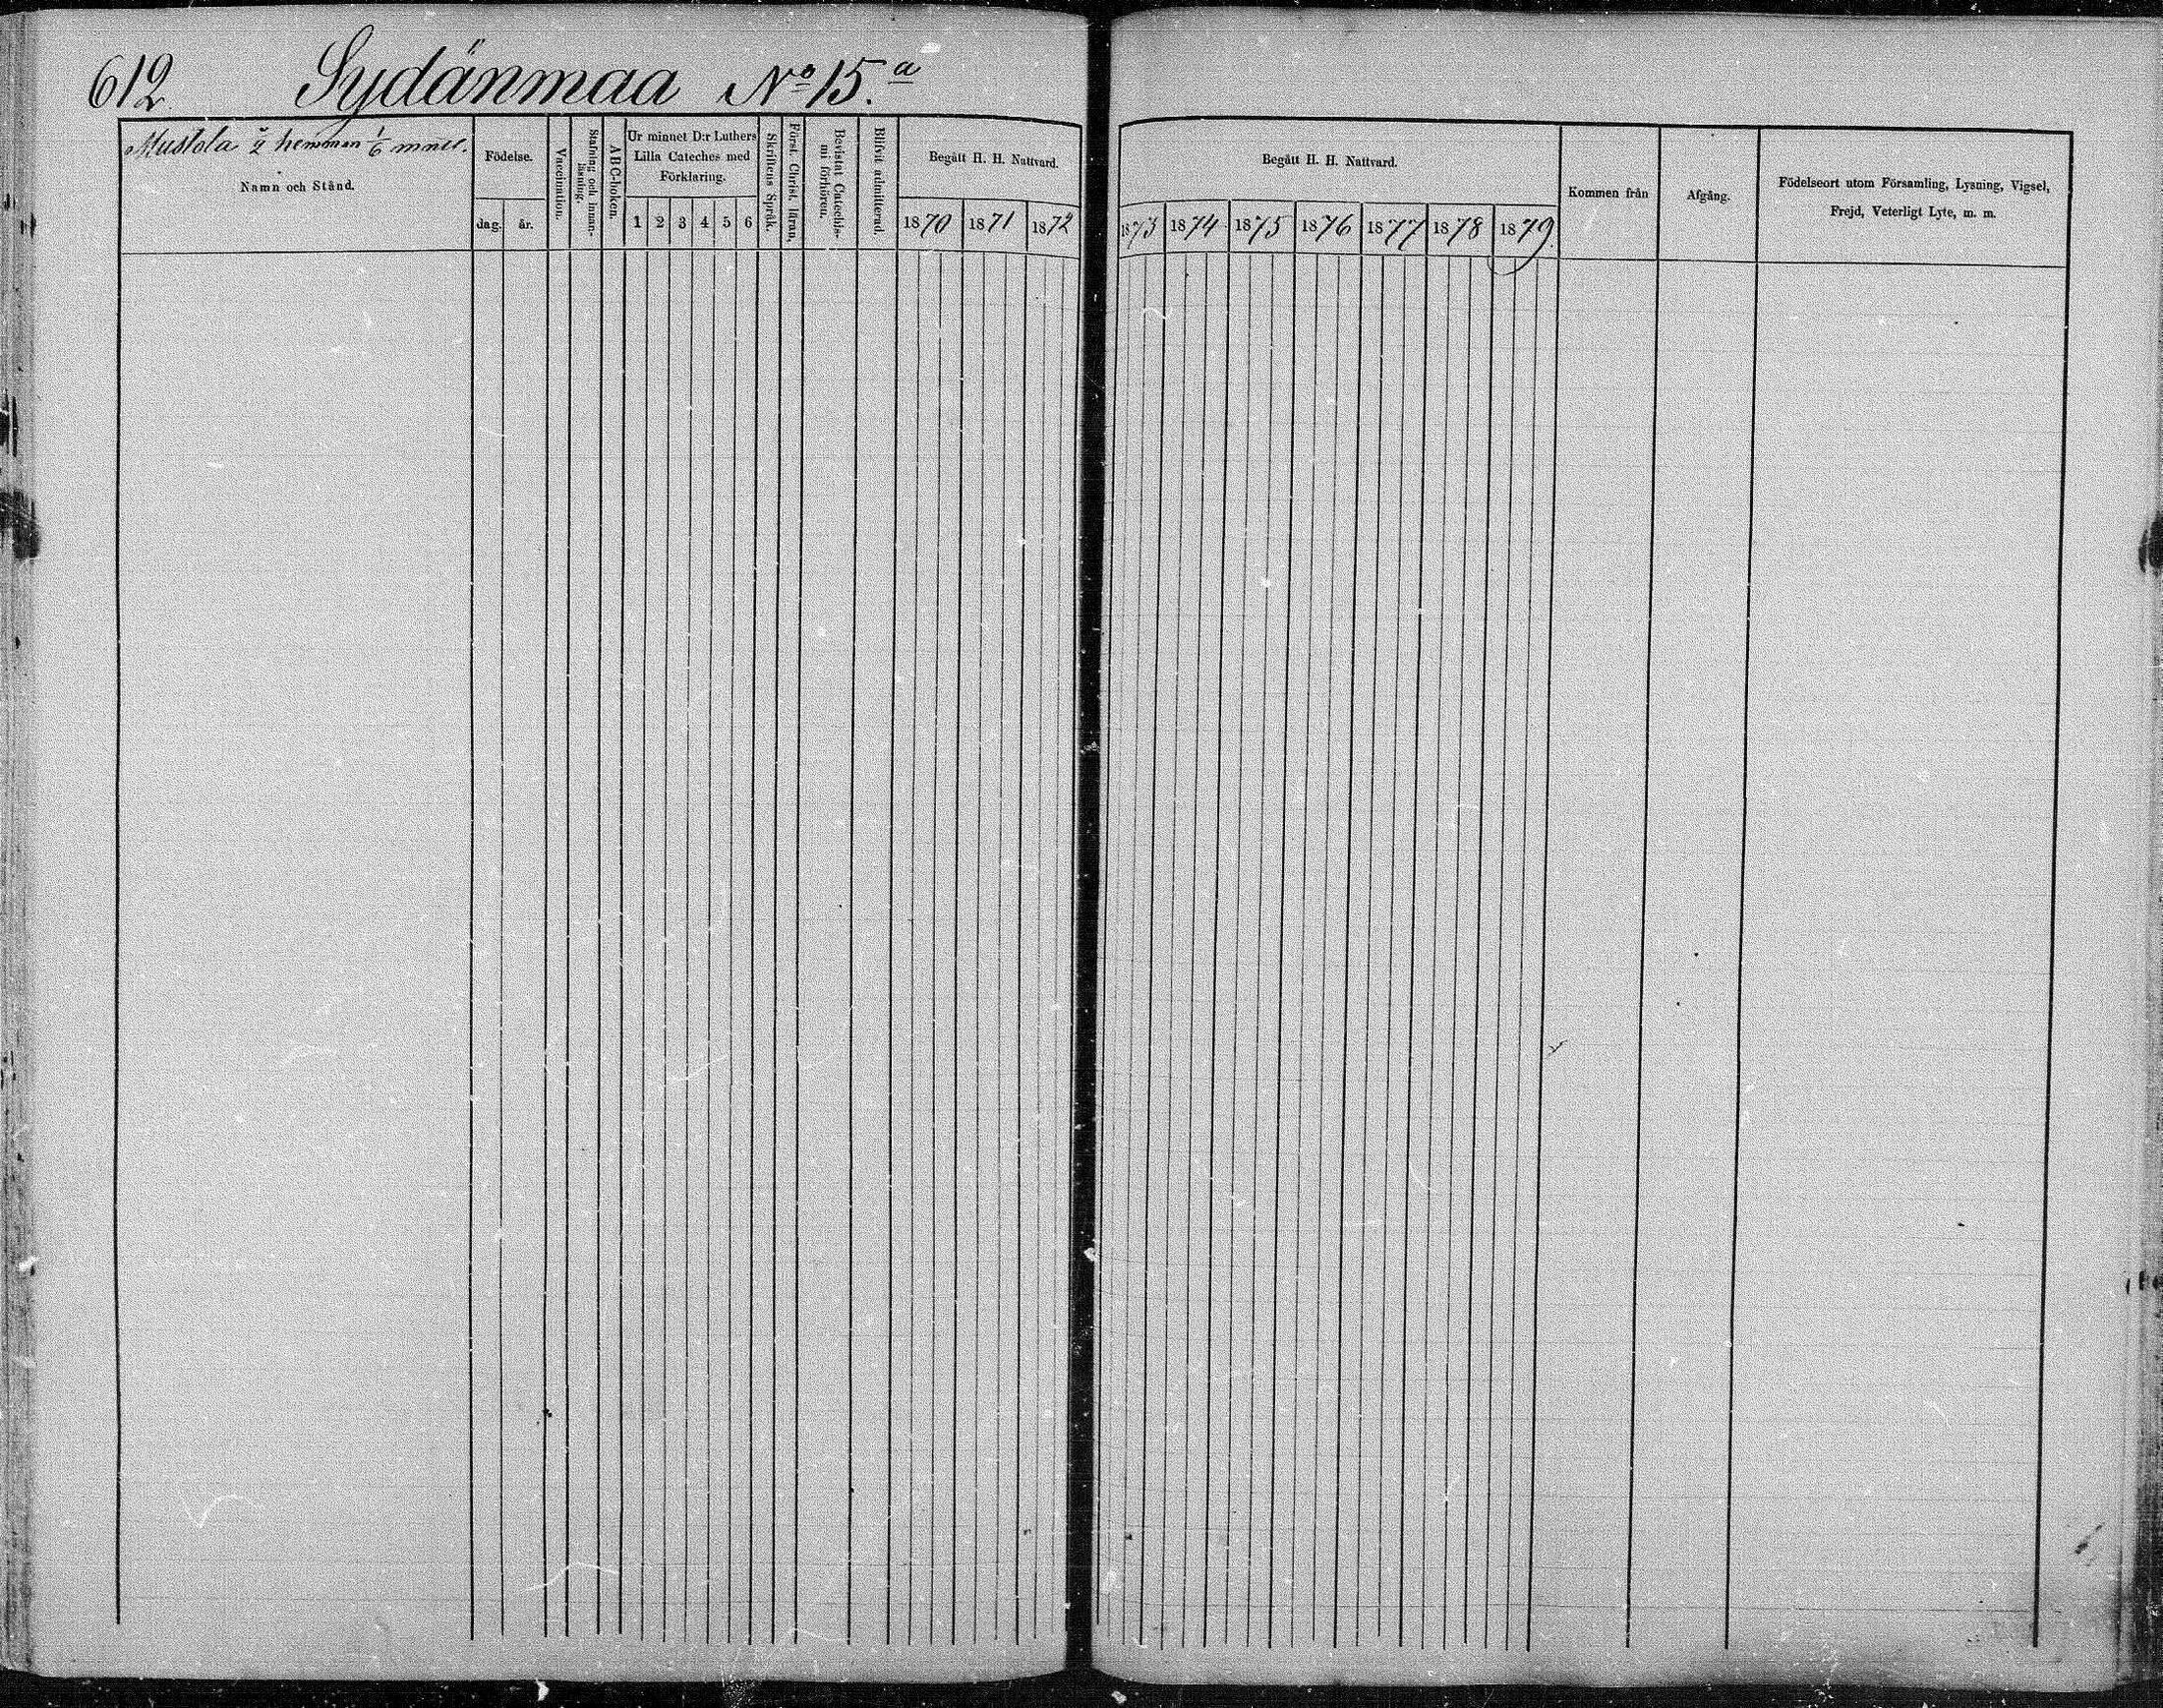 612. Sydänmaa No 15.a
Mustola hemman 1/6 mntl.
Namn och Stånd.
Födelse.
dag.
år.
Vaccination.
Stafning och innan-
läsning.
ABC-boken.
Ur minnet D:r Luthers
Lilla Cateches med
Förklaring.
1 2 3 4 5 6
Skriftens Språk.
Först. Christ. läran.
Bevistat Catechis-
mi förhören.
Blifvit admitterad.
Begått H. H. Nattvard.
1870 1871 1872
Begått H. H. Nattvard.
1873 1874 1875 1876 1877 1878 1879.
Kommen från
Afgång.
Födelseort utom Församling, Lysning, Vigsel,
Frejd, Veterligt Lyte, m. m.